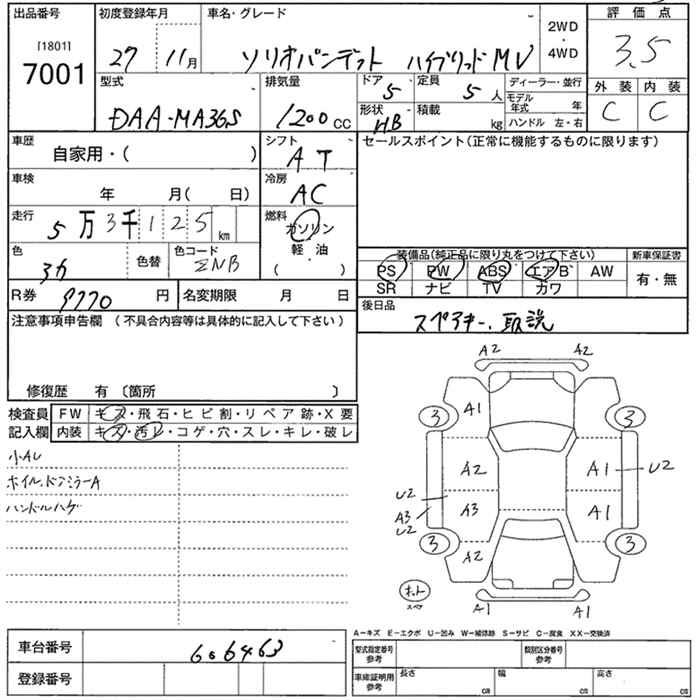 出品番号 初度登録年月 車名・グレード 2WD・4WD 評価点
[1801] 7001 27 11月 ソリオバンデット ハイブリッドMV 3.5
型式 排気量 ドア 5 定員 5人 ディーラー・並行 外装 内装
DAA-MA36S 1200cc 形状 HB 積載 kg モデル年式 年 C C
ハンドル 左・右
車歴 自家用・( ) シフト AT セールスポイント(正常に機能するものに限ります)
車検 年 月( 日) 冷房 AC
走行 5万3千125km 燃料 ガソリン・軽油 ( )
色 色替 色コード ZNB 装備品(純正品に限り丸をつけて下さい) 新車保証書
PS PW ABS エアB AW 有・無
SR ナビ TV カワ
R券 9770円 名変期限 月 日 後日品
スペアキー、取説
注意事項申告欄 (不具合内容等は具体的に記入して下さい)
修復歴 有 〔箇所 〕
検査員 FW キズ・飛石・ヒビ割・リペア跡・X要
記入欄 内装 キズ・汚レ・コゲ・穴・スレ・キレ・破レ
小AU
ホイル、ドアミラーA
ハンドルハゲ
A2 A2
3 A1 3
A2 A1 U2
U2 A3 A1
A3
U2
3 A2 3
A1 A1
A-キズ E-エクボ U-凹み W-補修跡 S-サビ C-腐食 XX-交換済
車台番号 606463 型式指定番号 参考 類別区分番号 参考
登録番号 車庫証明用 参考 長さ cm 幅 cm 高さ cm